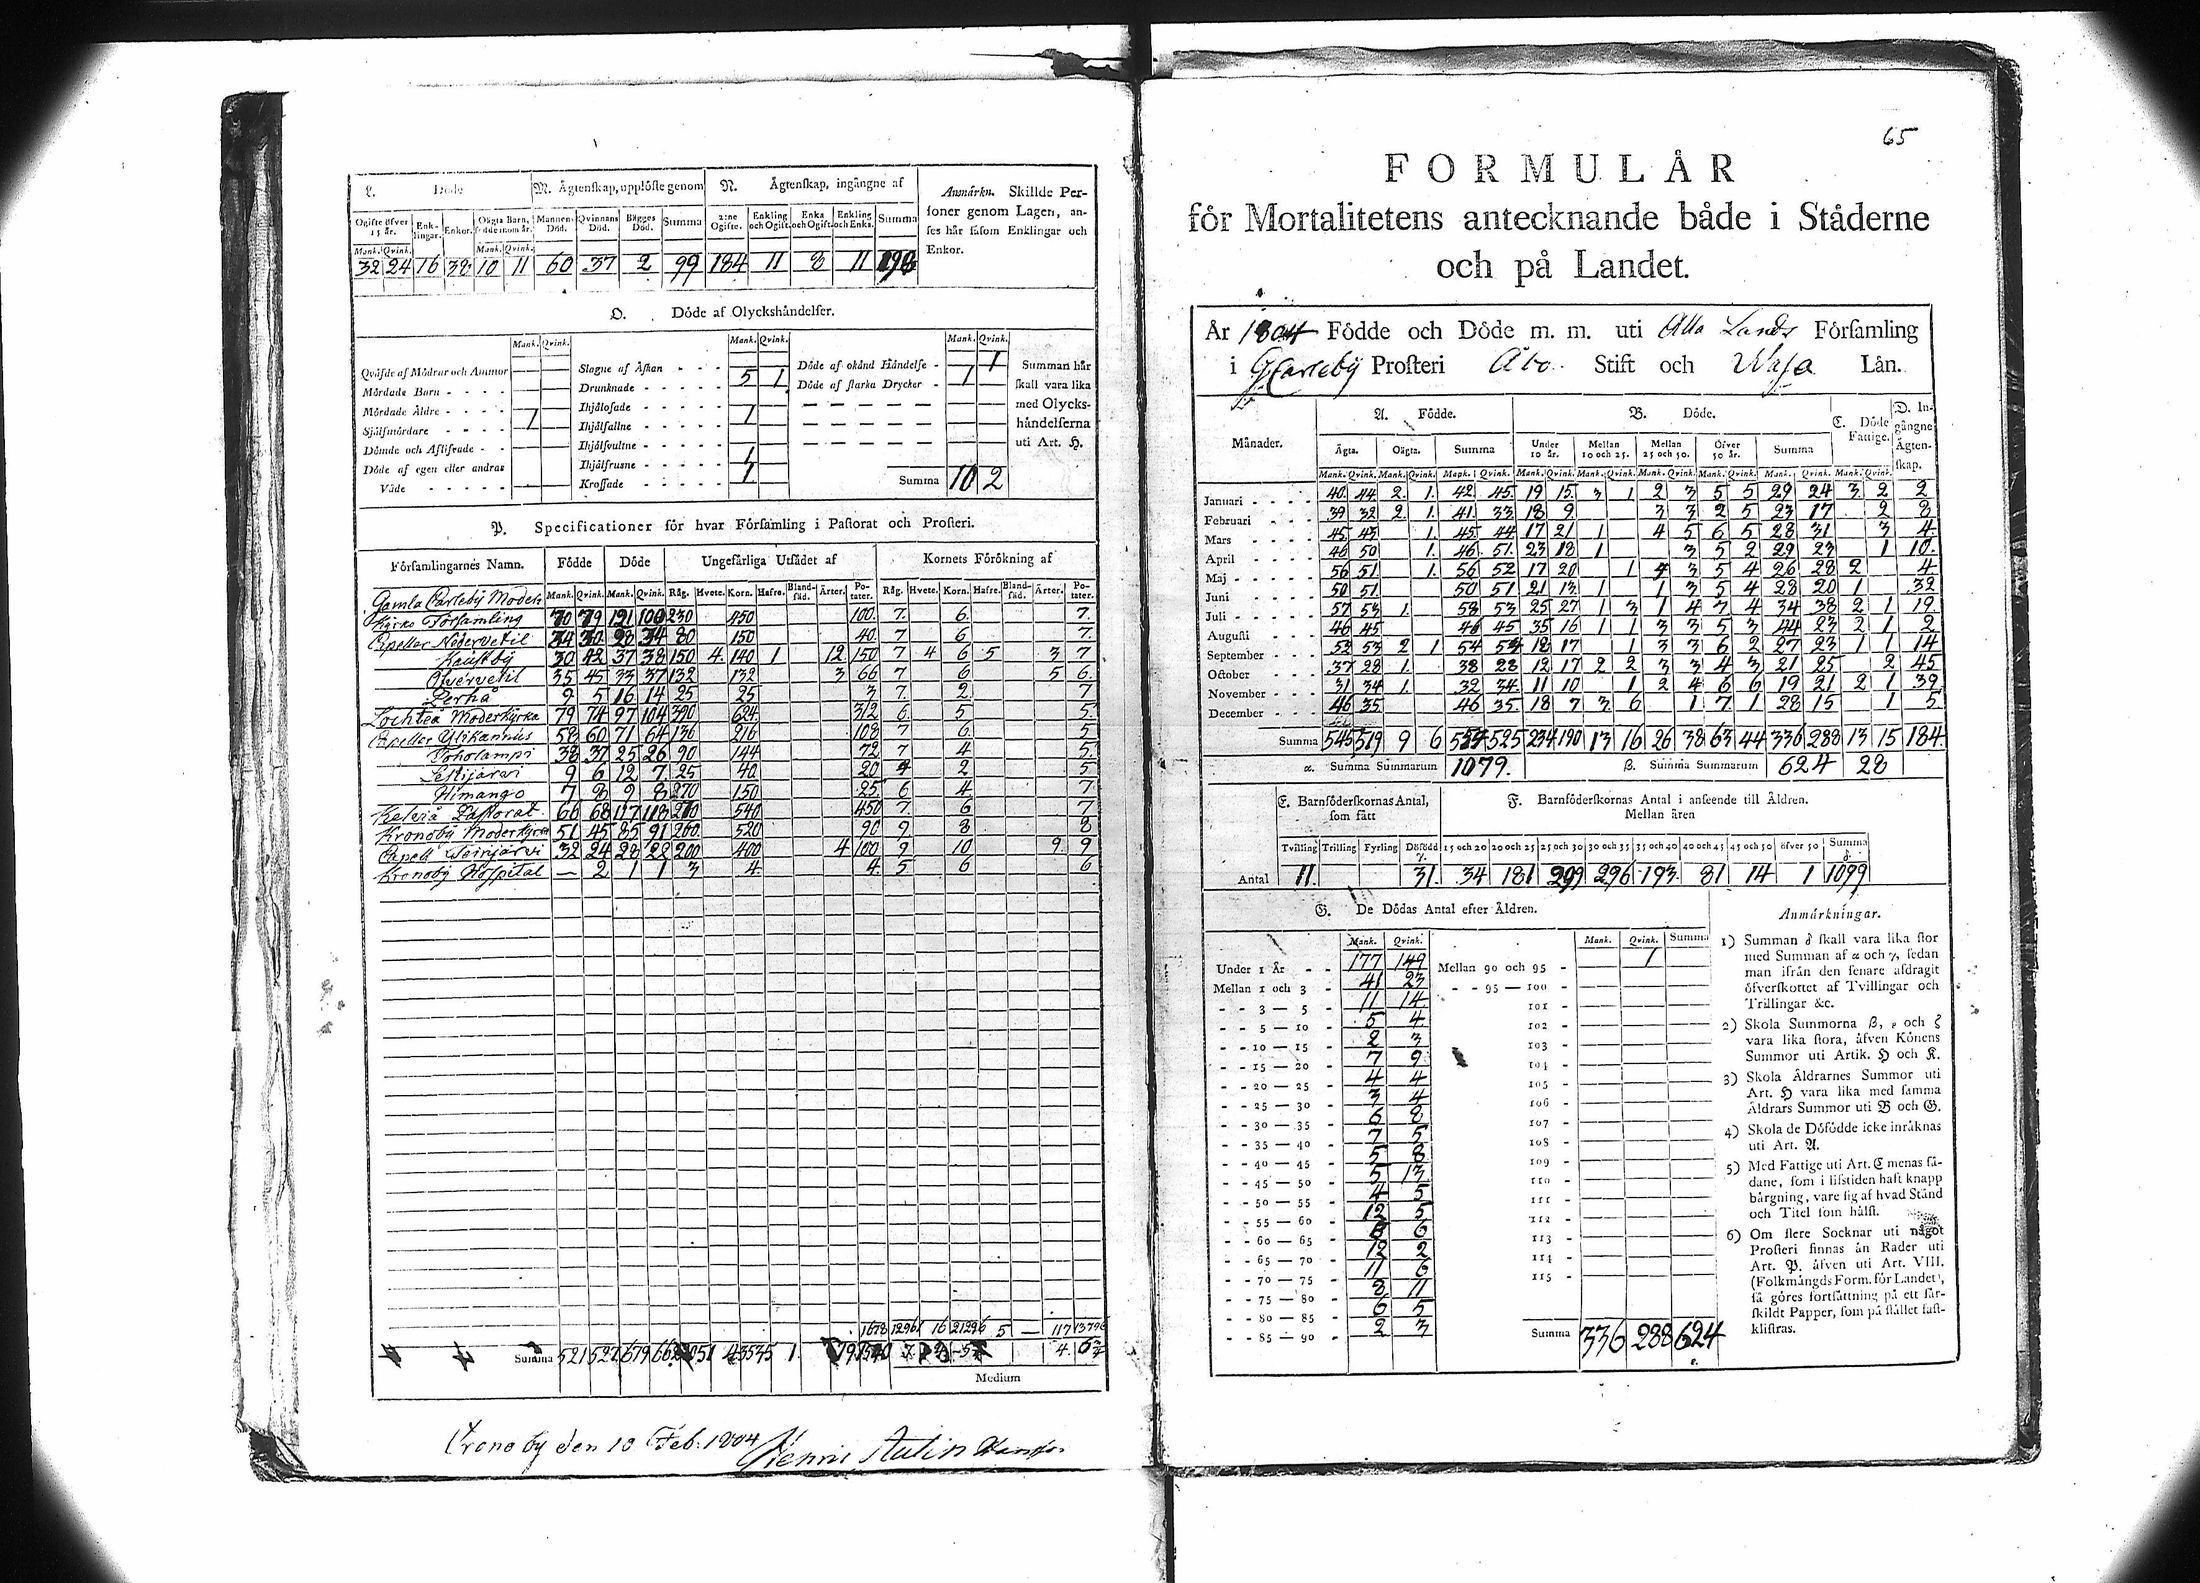 L. Döde
M. Ägtenskap, upplöste genom
N. Ägtenskap, ingångne af
Anmärkn. Skillde Personer genom Lagen, anses här såsom Enklingar och Enkor.
Ogifte öfver 15 år. Enklingar. Enkor. Oägta Barn, födde inom år. Mannens Död. Qvinnans Död. Bägges Död. Summa 2:ne Ogifte. Enkling och Ogift. Enka och Ogift. Enkling och Enka. Summa
Mank. Qvink. Mank. Qvink.
32 24 16 38 10 11 60 37 2 99 184 11 8 11
O. Döde af Olyckshändelser.
Mank. Qvink. Mank. Qvink. Mank. Qvink.
Qväfde af Mödrar och Ammor
Mördade Barn
Mördade Äldre
Sjelfmördare 1
Dömde och Aflifvade
Döde af egen eller andras Våde
Slagne af Åskan
Drunknade 5 1
Ihjälosade
Ihjälfallne 1
Ihjälsvultne
Ihjälfrusne 1
Krossade 1
Döde af okänd Händelse 1
Döde af starka Drycker 1
Summa 10 2
Summan här skall vara lika med Olyckshändelserna uti Art. H.
P. Specificationer för hvar Församling i Pastorat och Prosteri.
Församlingarnes Namn. Födde Döde Ungefärliga Utsädet af Kornets Förökning af
Mank. Qvink. Mank. Qvink. Råg. Hvete. Korn. Hafre. Blandsäd. Ärter. Potater. Råg. Hvete. Korn. Hafre. Blandsäd. Ärter. Potater.
Gamla Carleby Moder
Kyrko Församling 70 79 121 100 230 450 100. 7. 6. 7.
Capeller Nedervetil 34 30 28 34 80 150 40. 7 6 7.
Kaustby 30 42 37 38 150 4. 140 1 12 150 7 4 6 5 3 7
Öfvervetil 35 45 33 37 132 132 3 66 7 6 5 6.
Perhå 9 5 16 14 25 25 3 7. 2. 7
Lochteå Moderkyrka 79 74 97 104 390 624. 312 6. 5 5.
Capeller Ylikannus 58 60 71 64 136 216 108 7 6 5
Toholampi 38 37 25 26 90 144 72 7 4 5.
Lestijärvi 9 6 12 7 25 40. 20 4 2 5
Himango 7 8 9 8 270 150 25 6 4 7
Kelviå Pastorat 66 68 117 118 540 450 7. 6 7
Kronoby Moderkyrka 51 45 85 91 260. 520 90 9 8 8
Capell Terijärvi 32 24 28 22 200 400 4 100 9 10 9. 9
Kronoby Hospital — 2 1 1 3 4. 4. 5 6 6
1678 12961 16 21296 5 — 117 13796
Summa 521 527 679 4 3535 1. 4.
Medium
Cronoby den 10 Feb. 1804
65
FORMULÅR
för Mortalitetens antecknande både i Städerne
och på Landet.
År 1804 Födde och Döde m. m. uti Alla Lands Församling
i GCarleby Prosteri Åbo Stift och Wasa Län.
Månader. A. Födde. B. Döde. C. Döde Fattige. D. Ingångne Ägtenskap.
Ägta. Oägta. Summa Under 10 år. Mellan 10 och 25. Mellan 25 och 50. Öfver 50 år. Summa
Mank. Qvink. Mank. Qvink. Mank. Qvink. Mank. Qvink. Mank. Qvink. Mank. Qvink. Mank. Qvink. Mank. Qvink. Mank. Qvink.
Januari 40. 44 2. 1. 42 45. 19 15. 3 1 2 3 5 5 29 24 3 2 2
Februari 39 32 2. 1. 41. 33 18 9 3 3 2 5 23 17 2 8
Mars 45 43 1. 45. 44 17 21 1 4 5 6 5 28 31 3 4
April 46 50 1. 46. 51. 23 18 1 3 5 2 29 23 1 10.
Maj 56 51. 1. 56 52 17 20 1 4 3 5 4 26 28 2 4
Juni 50 51. 50 51 21 13 1 1 3 5 4 28 20 1 32
Juli 57 53 1. 58 53 25 27 1 3 1 4 7 4 34 38 2 1 19.
Augusti 46 45 46 45 35 16 1 1 3 3 5 3 44 23 2 1 2
September 52 53 2 1 54 54 18 17 1 3 3 6 2 27 23 1 1 14
October 37 28 1. 38 28 12 17 2 2 3 3 4 3 21 25 2 45
November 31 34 1. 32 34. 11 10 1 2 4 6 6 19 21 2 1 39
December 46 35 46 35. 18 7 3 6 1 7 1 28 15 1 5
Summa 545 519 9 6 554 525 234 190 13 16 26 38 63 44 336 288 13 15 184.
α. Summa Summarum 1079. β. Summa Summarum 624 28
E. Barnföderskornas Antal, som fått
F. Barnföderskornas Antal i anseende till Åldren.
Mellan åren
Tvilling Trilling Fyrling Dödfödd γ. 15 och 20 20 och 25 25 och 30 30 och 35 35 och 40 40 och 45 45 och 50 öfver 50 Summa δ.
Antal 11. 31. 34 181 299 296 193. 81 14 1 1099
G. De Dödas Antal efter Åldren.
Mank. Qvink. Mank. Qvink. Summa
Under 1 År 177 149
Mellan 1 och 3 41 23
3 — 5 11 14
5 — 10 5 4
10 — 15 2 3
15 — 20 7 9
20 — 25 4 4
25 — 30 3 4
30 — 35 6 8
35 — 40 7 5
40 — 45 5 8
45 — 50 5 13
50 — 55 4 5
55 — 60 12 5
60 — 65 8 6
65 — 70 12 2
70 — 75 11 6
75 — 80 8 11
80 — 85 6 5
85 — 90 2 3
Mellan 90 och 95 1
95 — 100
101
102
103
104
105
106
107
108
109
110
111
112
113
114
115
Summa 336 288 624
ε.
Anmärkningar.
1) Summan δ skall vara lika stor
med Summan af α och γ, sedan
man ifrån den senare afdragit
öfverskottet af Tvillingar och
Trillingar &c.
2) Skola Summorna β, ε och ζ
vara lika stora, äfven Könens
Summor uti Artik. H och K.
3) Skola Åldrarnes Summor uti
Art. H vara lika med samma
Åldrars Summor uti B och G.
4) Skola de Döfödde icke inräknas
uti Art. A.
5) Med Fattige uti Art. C menas sådane, som i lifstiden haft knapp
bärgning, vare sig af hvad Stånd
och Titel som hälst.
6) Om flere Socknar uti något
Prosteri finnas än Rader uti
Art. P. äfven uti Art. VIII.
(Folkmängds Form. för Landet),
så göres fortsättning på ett särskildt Papper, som på stället fastklistras.